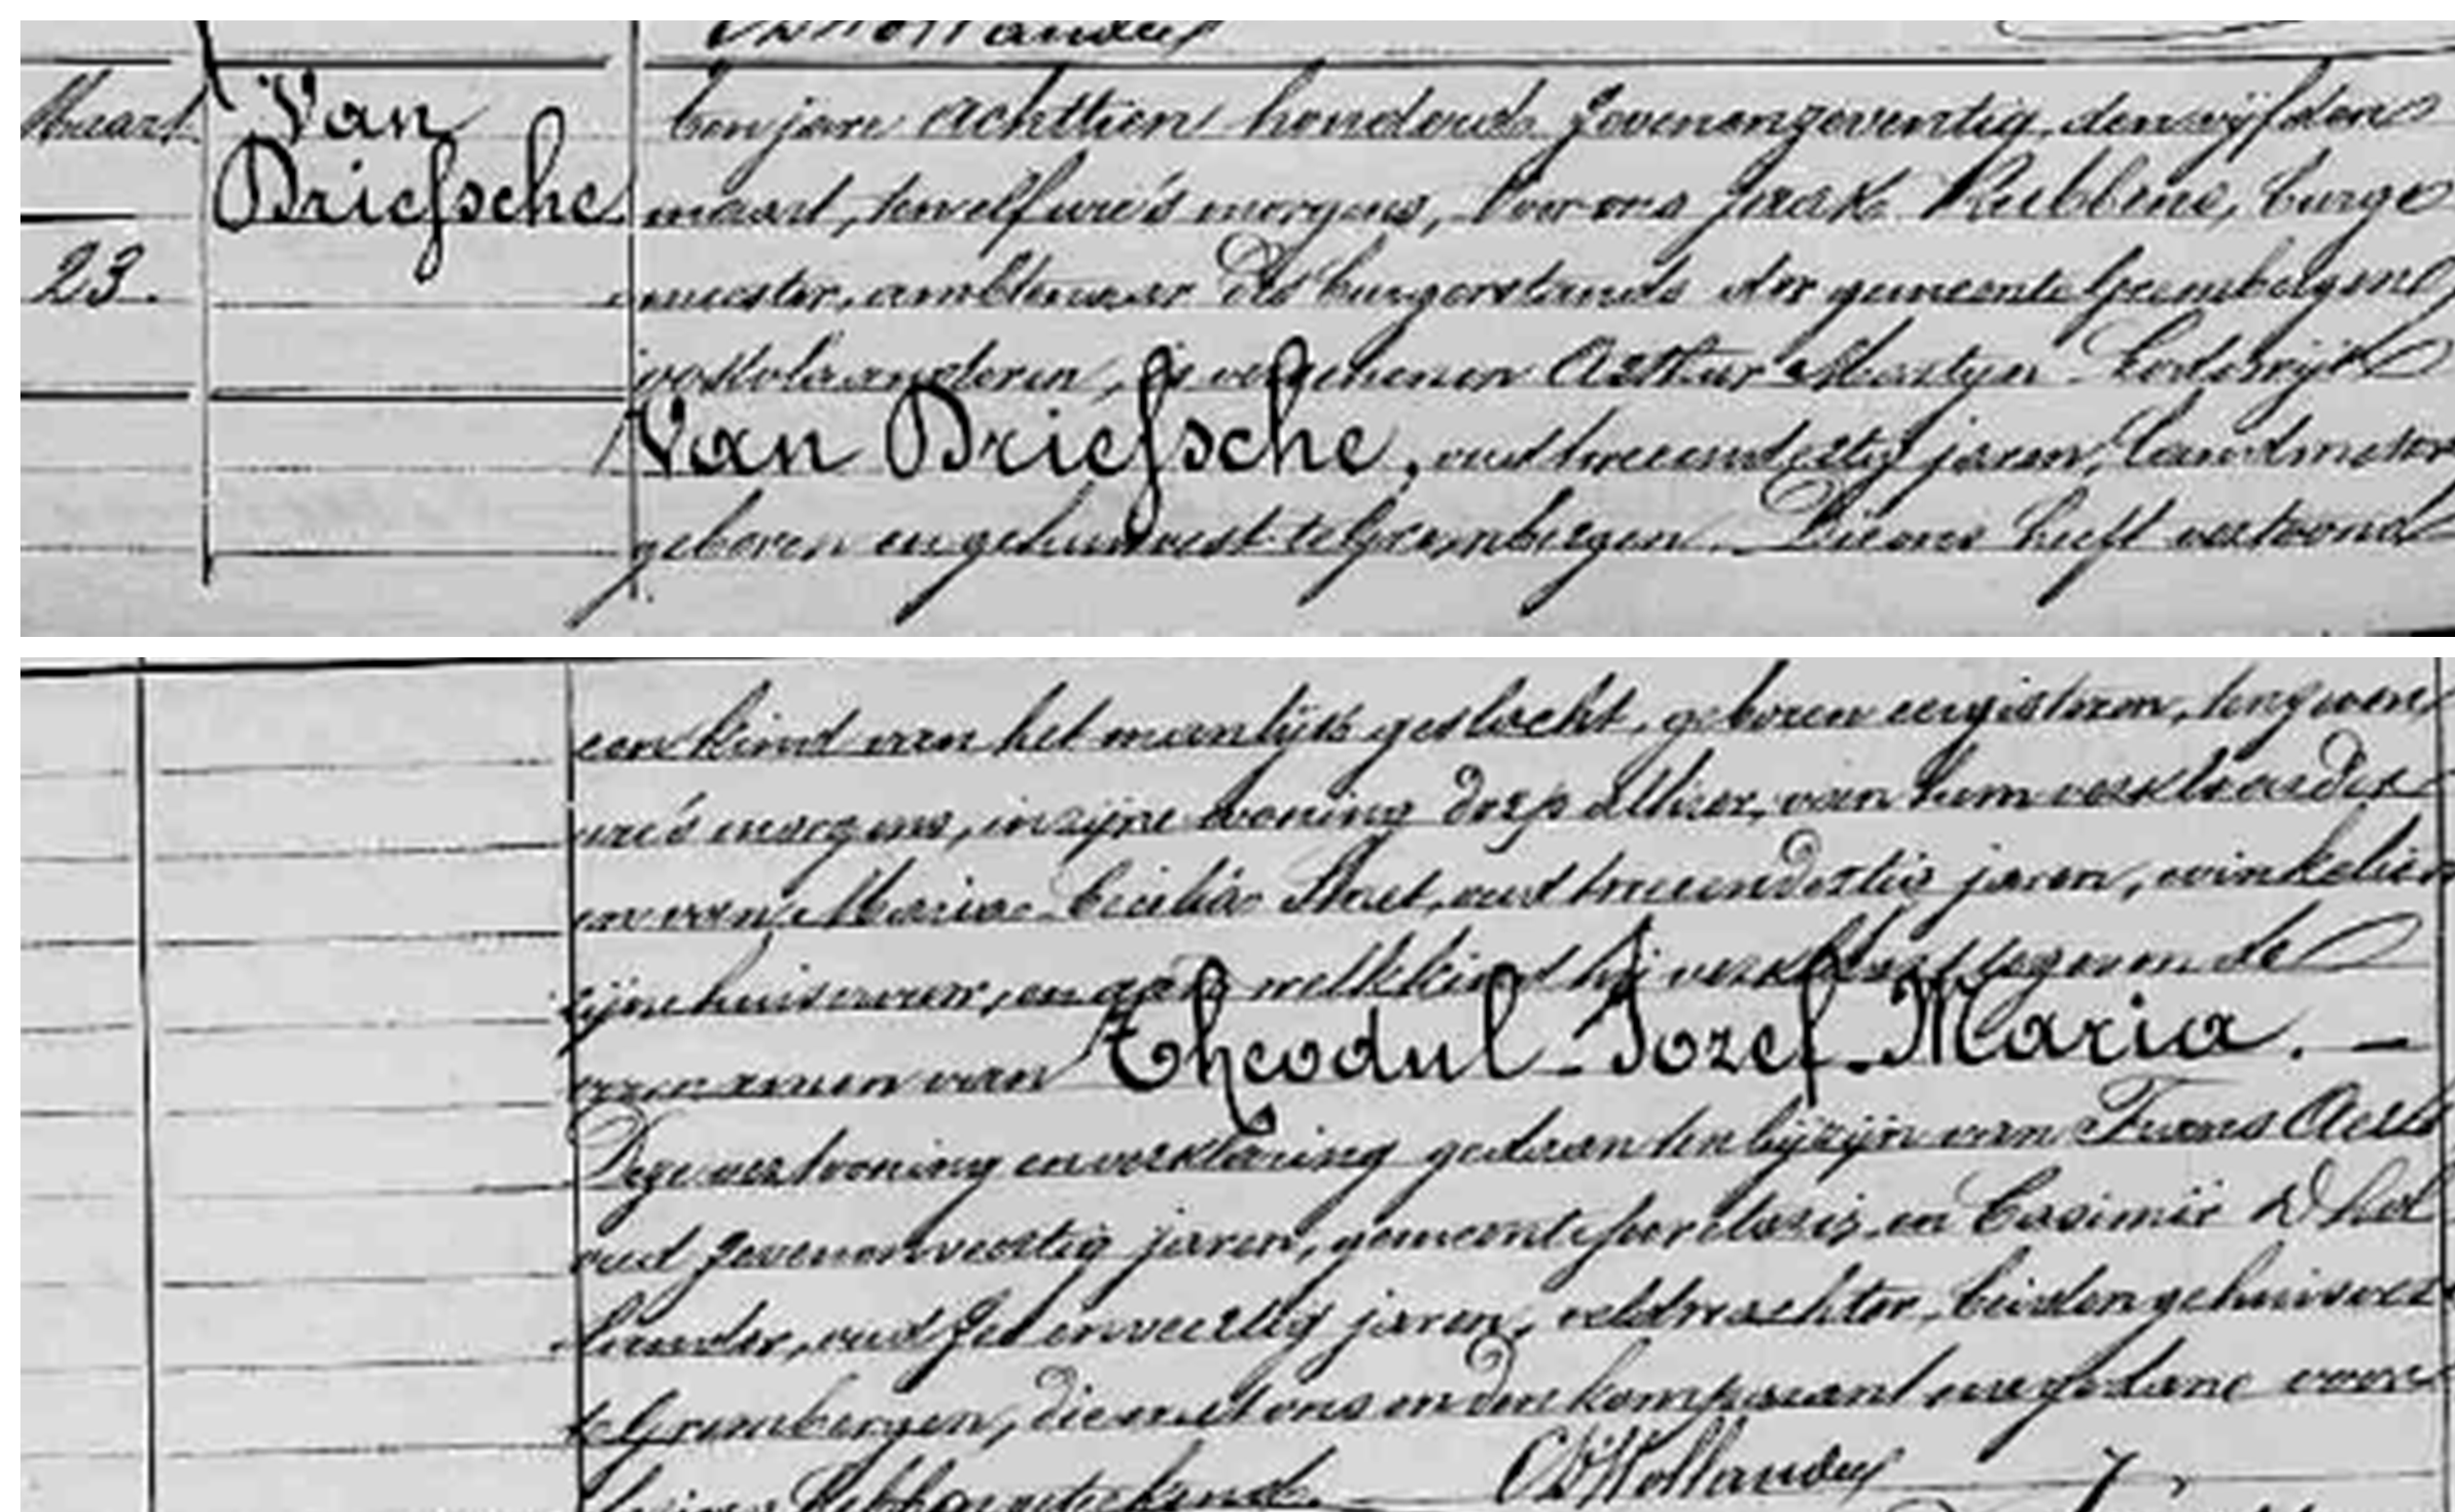 D'Hollander
Maart
23.
Van
Driessche
Ten jare achttien honderd zevenenzeventig, den vijfden
maart, ten elf ure's morgens, voor ons Rubbens, burge
meester, ambtenaar des burgerstands der gemeente Grembergen,
oostvlaanderen, is verschenen Arthur Martyn Lodewijk
Van Driessche, oud drieendertig jaren, landmeter
geboren en gehuisvest te Grembergen. Die ons heeft vertoond
een kind van het manlijk geslacht, geboren eergisteren, ten zeven
ure's morgens, in zijne woning dorp alhier, van hem verklaarder
en van Maria Cecilia oud drieendertig jaren, winkelier
zijne huisvrouw, en aan welk kind hij verklaart te geven de
voornamen van Theodul-Jozef-Maria. -
Deze vertooning en verklaring gedaan ten bijzijn van Frans Aelb
oud zevenenveertig jaren, gemeentesecretaris, en Casimir D'hol
lander, oud jaren, veldwachter, beiden gehuisvest
te Grembergen, die met ons en den komparant deze voor
lezing hebben geteekend.
CD'Hollander